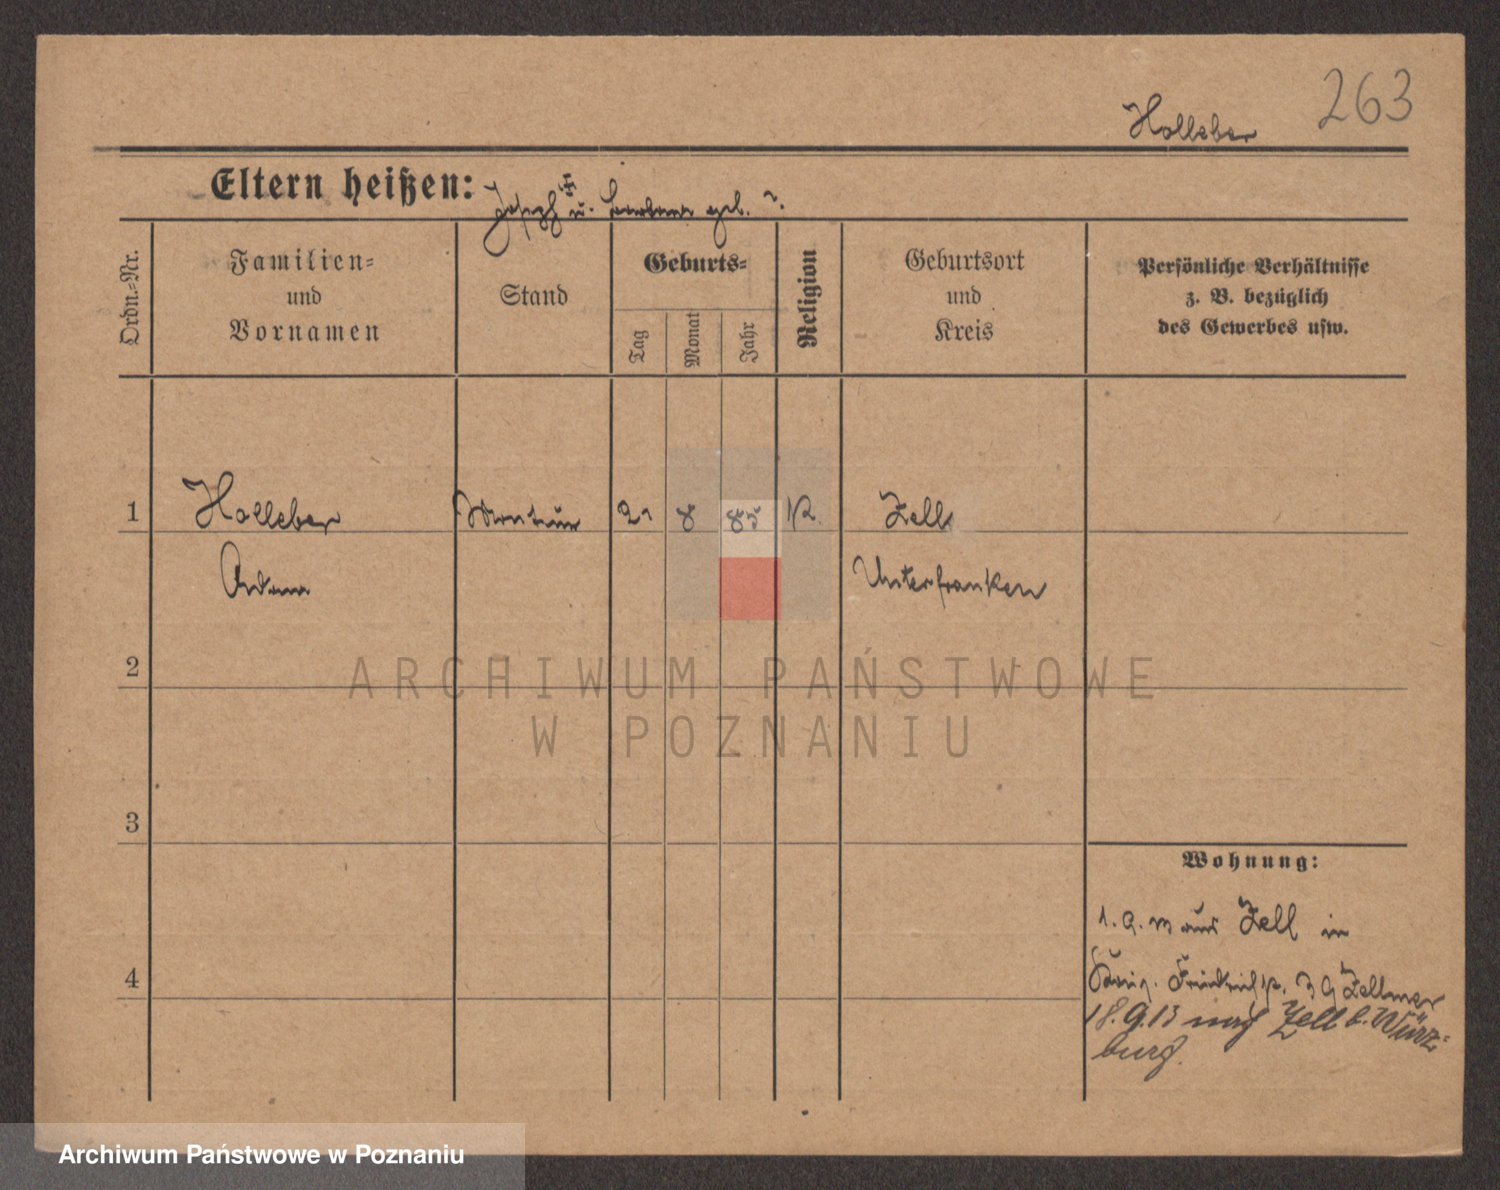 263
Holleber
Eltern heißen: Joseph u. Barbara geb. ?.
Ordn.-Nr.
Familien-
und
Vornamen
Stand
Geburts-
Tag
Monat
Jahr
Religion
Geburtsort
und
Kreis
Persönliche Verhältnisse
z. B. bezüglich
des Gewerbes usw.
1
Holleber
Monteur
21
8
85
K.
Zell
Adam
Unterfranken
2
ARCHIWUM PAŃSTWOWE
W POZNANIU
3
Wohnung:
1. 9. 13 aus Zell in
4
Friedrich Zellmer
18.9.13 nach Zell b. Würz-
burg.
Archiwum Państwowe w Poznaniu